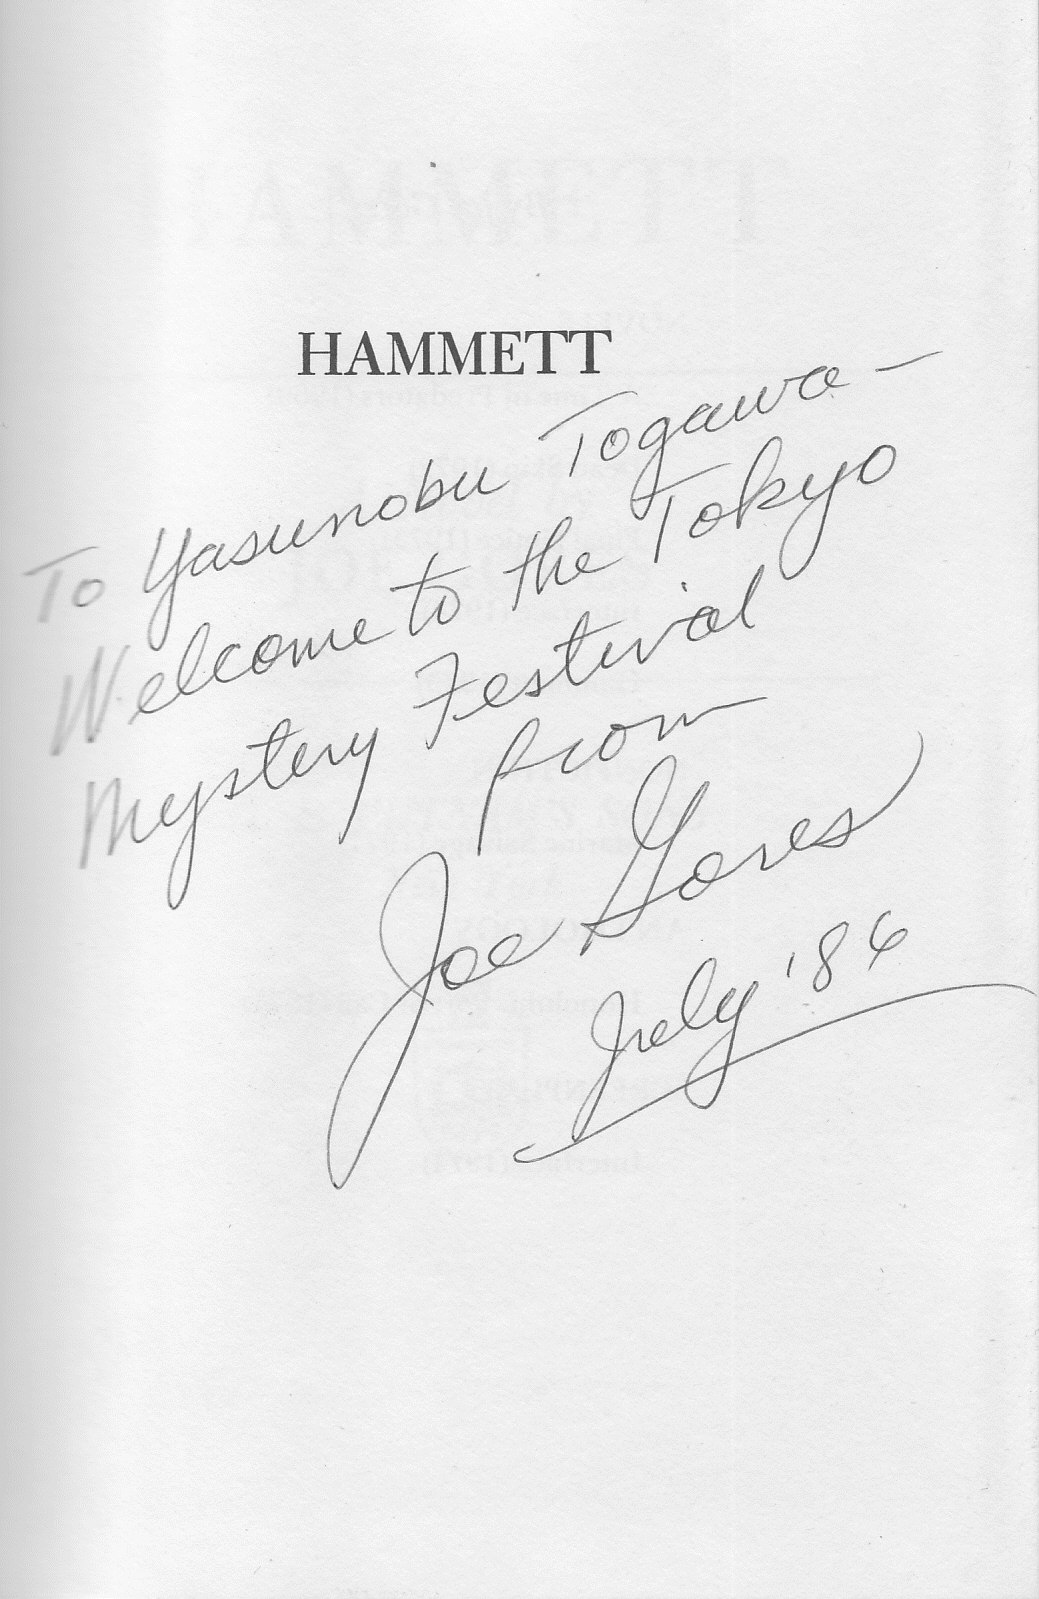 HAMMETT
To Yasunobu Togawa –
Welcome to the Tokyo
Mystery Festival
from
Joe Gores
July '86